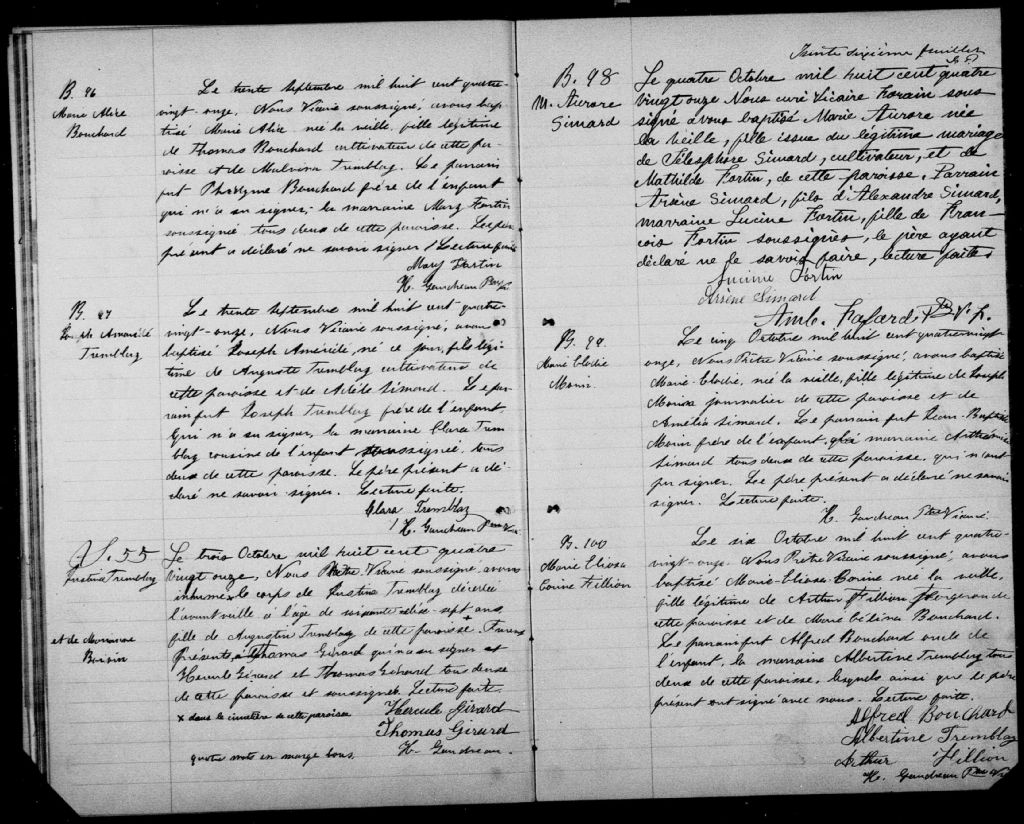 B. 96
Marie Alice
Bouchard
Le trente Septembre mil huit cent quatre-
vingt-onze, Nous Vicaire soussigné, avons bap
tisé Marie Alice née la veille, fille légitime
de Thomas Bouchard cultivateur de cette pa
roisse et de Malvina Tremblay. Le parrain
fut Bouchard frère de l'enfant
qui n'a su signer; la marraine Mary Fortin
soussignée tous deux de cette paroisse. Le père
présent a déclaré ne savoir signer. Lecture faite
Mary Fortin
H. Gaudreau Ptre Vic.
B. 97
Joseph Amérilé
Tremblay
Le trente Septembre mil huit cent quatre-
vingt-onze, Nous Vicaire soussigné, avons
baptisé Joseph Amérilé, né ce jour, fils légi
time de Auguste Tremblay cultivateur de
cette paroisse et de Adèle Simard. Le pa
rain fut Joseph Tremblay frère de l'enfant
qui n'a su signer, la marraine Clara Trem
blay cousine de l'enfant soussignée, tous
deux de cette paroisse. Le père présent a dé
claré ne savoir signer. Lecture faite.
Clara Tremblay
H. Gaudreau Ptre Vic.
S. 55
Justine Tremblay
et de
Boivin
Le trois Octobre mil huit cent quatre
vingt onze, Nous Prêtre Vicaire soussigné, avons
inhumé le corps de Justine Tremblay décédée
l'avant veille à l'âge de soixante dix-sept ans,
fille de Augustin Tremblay de cette paroisse + Furent
présents, Thomas Girard qui n'a su signer et
Hercule Girard et Thomas Girard tous deux
de cette paroisse et soussignés. Lecture faite.
x dans le cimetière de cette paroisse
Hercule Girard
Thomas Girard
H. Gaudreau.
quatre mots en marge bons.
Trente dixième feuillet
B. 98
M. Aurore
Simard
Le quatre Octobre mil huit cent quatre
vingt onze Nous curé Vicaire Forain sous
signé avons baptisé Marie Aurore née
la veille, fille issue du légitime mariage
de Télesphore Simard, cultivateur, et de
Mathilde Fortin, de cette paroisse, Parrain
Arsène Simard, fils d'Alexandre Simard,
marraine Lucine Fortin, fille de Fran
cois Fortin soussignés, le père ayant
déclaré ne le savoir faire, lecture faite.
Lucinne Fortin
Arsène Simard
Amb. Fafard Ptr V. f.
B. 99
Marie Elodie
Morin.
Le cinq Octobre mil huit cent quatrevingt
onze, Nous Prêtre Vicaire soussigné, avons baptisé
Marie-Elodie, née la veille, fille légitime de Joseph
Morin journalier de cette paroisse et de
Amélia Simard. Le parrain fut Jean-Baptiste
Morin frère de l'enfant, marraine
Simard tous deux de cette paroisse, qui n'ont
pu signer. Le père présent a déclaré ne savoir
signer. Lecture faite.
H. Gaudreau Ptre Vicaire
B. 100
Marie Eliosa
Corine Fillion
Le six Octobre mil huit cent quatre-
vingt-onze, Nous Prêtre Vicaire soussigné, avons
baptisé Marie-Eliosa Corine née la veille,
fille légitime de Arthur Fillion forgeron de
cette paroisse et de Marie Célina Bouchard.
Le parrain fut Alfred Bouchard oncle de
l'enfant, la marraine Albertine Tremblay tous
deux de cette paroisse, lesquels ainsi que le père
présent ont signé avec nous. Lecture faite.
Alfred Bouchard
Albertine Tremblay
Arthur Fillion
H. Gaudreau Ptre Vic